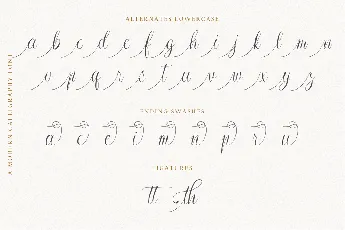 ALTERNATES LOWERCASE
a b c d e f g h i j k l m n
o p q r s t u v w x y z
ENDING SWASHES
a c e i m n p r u
FEATURES
tt th
A MODERN CALLIGRAPHY FONT